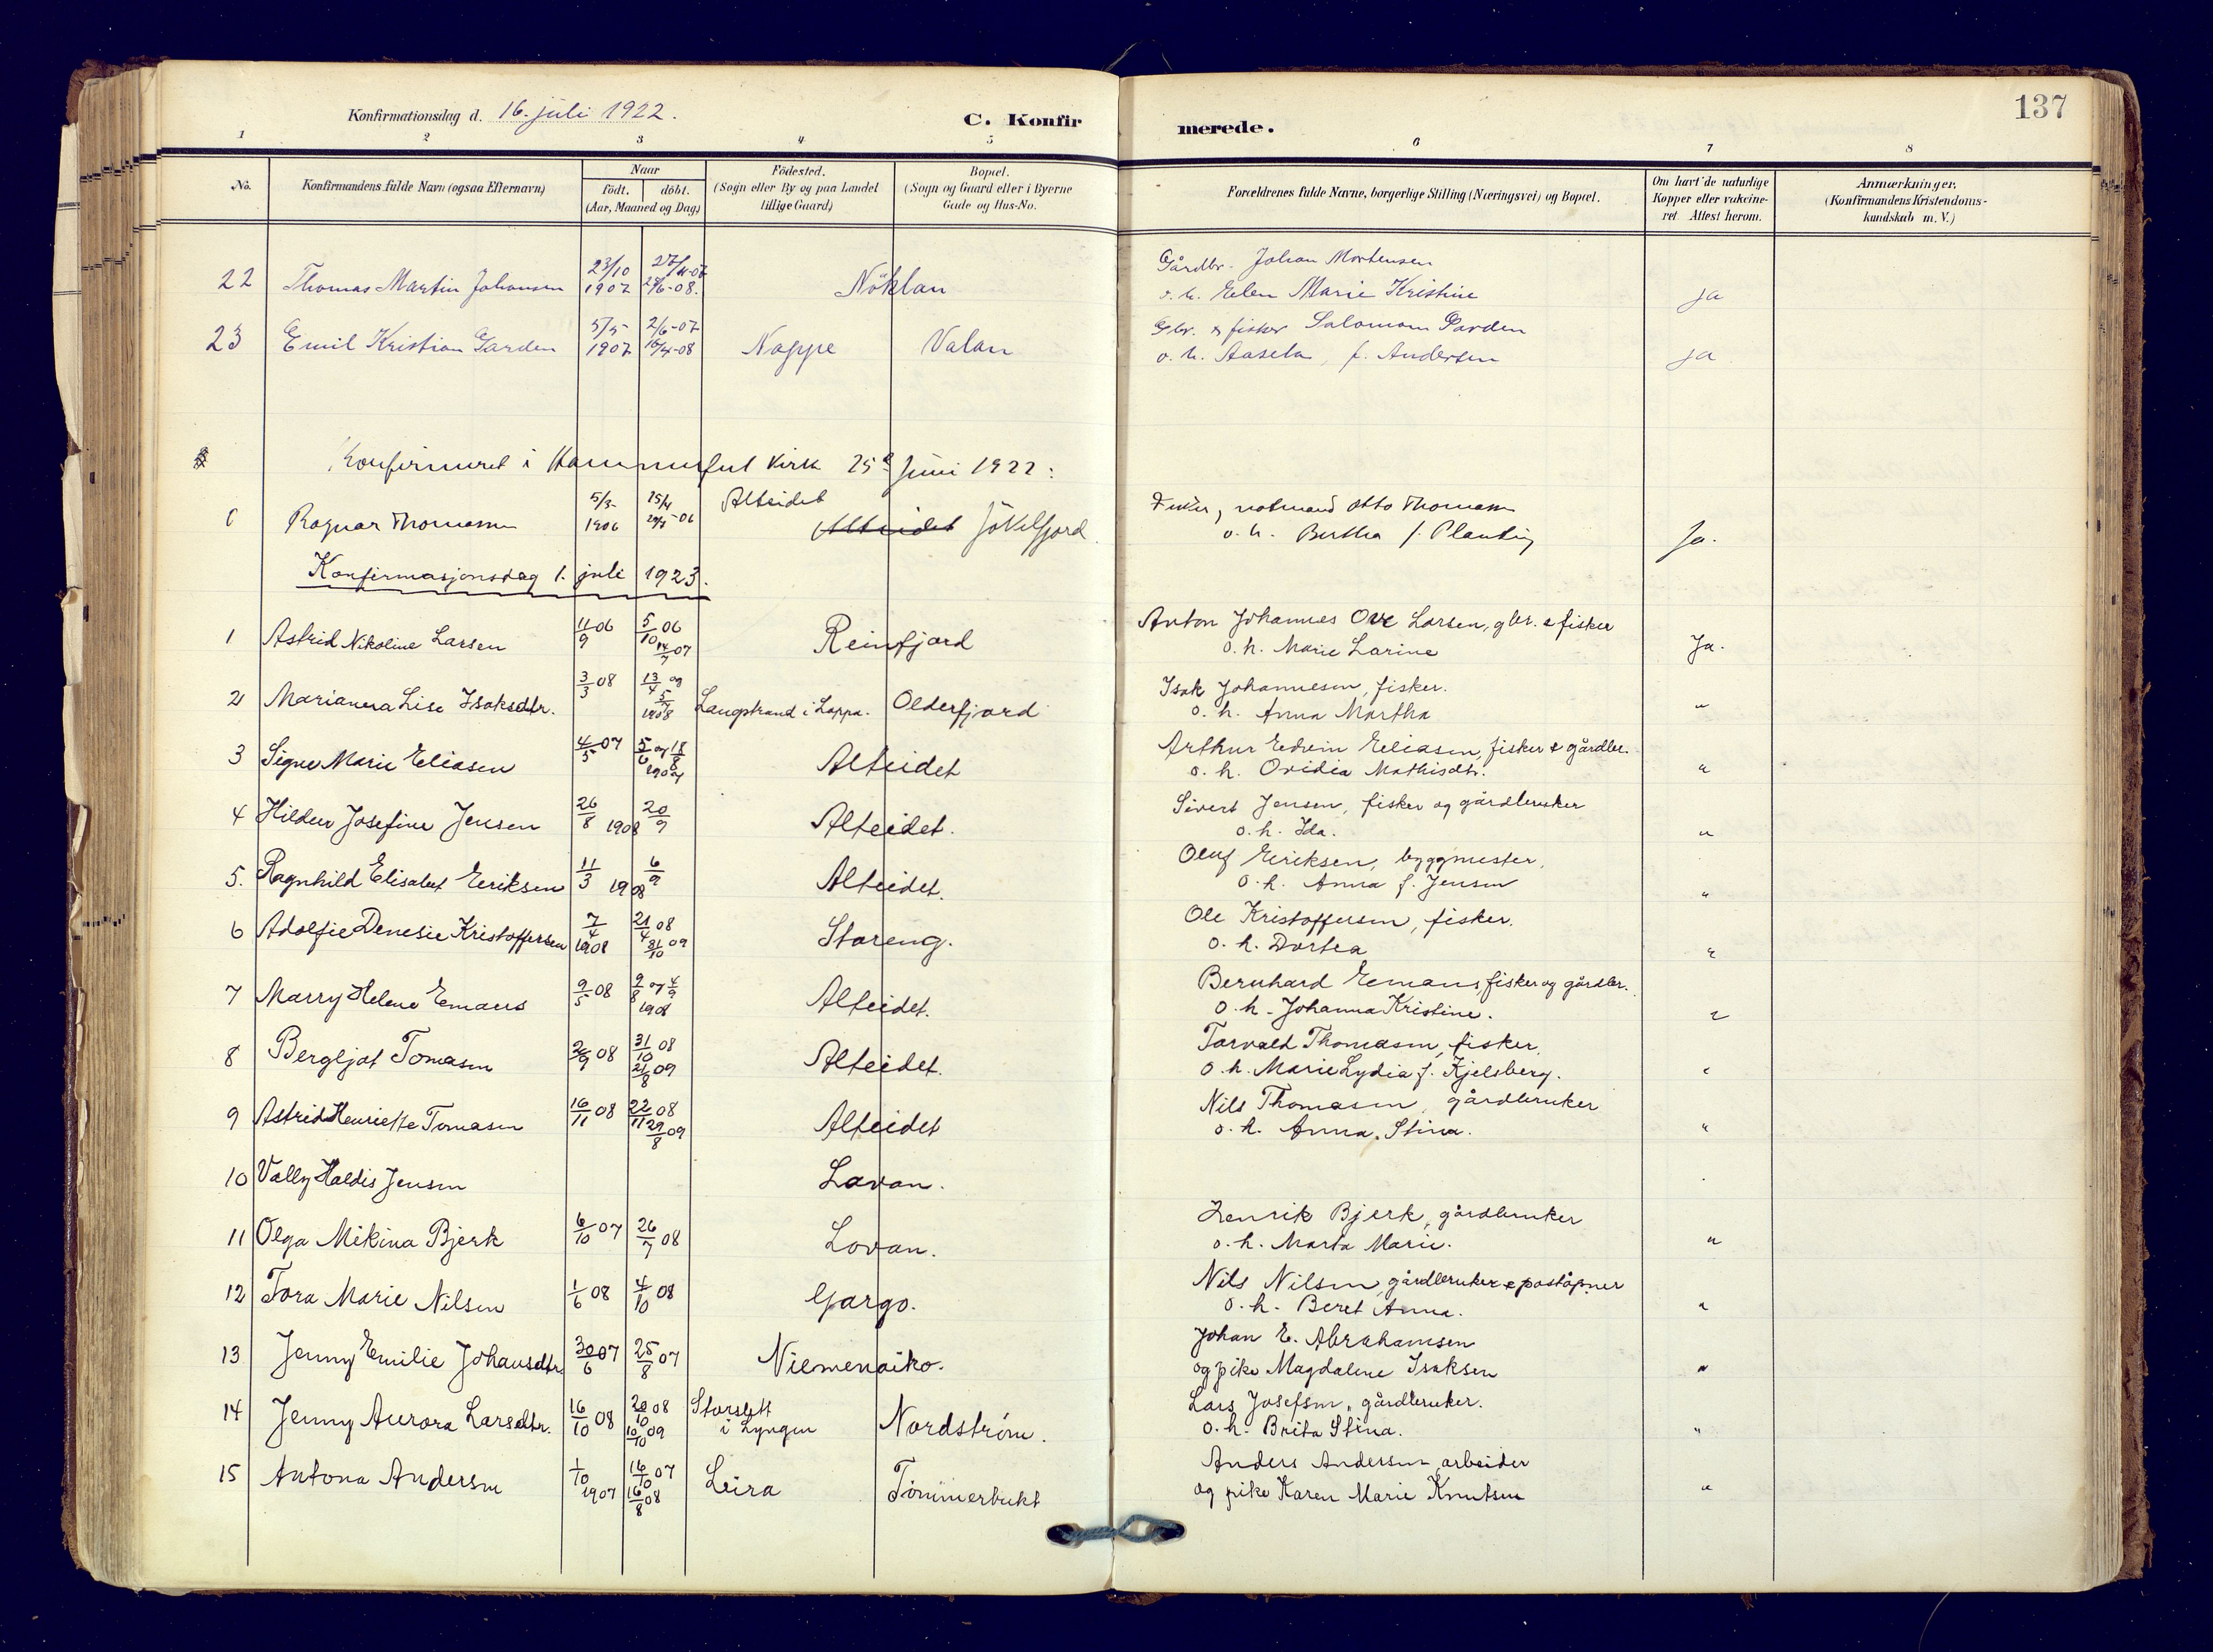 137
Konfirmationsdag d. 16. juli 1922.
C. Konfirmerede.
1 2 3 4 5 6 7 8
No.
Konfirmandens fulde Navn (ogsaa Efternavn)
Naar
födt. döbt.
(Aar, Maaned og Dag)
Födested.
(Sogn eller By og paa Landet
tillige Gaard)
Bopæl.
(Sogn og Gaard eller i Byerne
Gade og Hus-No.
Forældrenes fulde Navne, borgerlige Stilling (Næringsvei) og Bopæl.
Om havt de naturlige
Kopper eller vakcine-
ret. Attest herom.
Anmærkninger.
(Konfirmandens Kristendoms-
kundskab m. V.)
22 Thomas Martin Johansen 23/10 1907 28/6-08. Nöklan Gårdbr. Johan Mortensen
o. h. Elen Marie Kristine ja
23 Emil Kristian Garden 5/5 1907 2/6-07 16/4-08 Nappe Valan Gbr. & fisker Salomom Garden
o. h. Aasela, f. Andersen ja
Konfirmeret i Hammerfest Kirke 25de Juni 1922:
Ragnar Thomassen 5/3 1906 15/4 29/7-06 Alteidet Alteidet Jökelfjord Fisker, notmand Otto Thomassen
o. h. Bertha f. Planting Ja.
Konfirmasjonsdag 1. juli 1923.
1 Astrid Nikoline Larsen 11/9 06 5/10 06 14/7 07 Reinfjord Anton Johannes Ove Larsen, gbr. & fisker
o. h. Marie Larine Ja.
2 Marianna Lise Isaksdtr. 3/3 08 13/4 og 5/7 1908 Langstrand i Loppa. Olderfjord Isak Johannesen, fisker.
o. h. Anna Martha "
3 Signe Marie Eliasen 4/5 07 5/6 og 18/8 1907 Alteidet Arthur Edvin Eliasen, fisker & gårdbr.
o. h. Ovidia Mathisdtr. "
4 Hildur Josefine Jensen 26/8 1908 20/9 Alteidet. Sivert Jensen, fisker og gårdbruker
o. h. Ida. "
5. Ragnhild Elisabet Eeriksen 11/3 1908 6/9 Alteidet. Oluf Eeriksen, byggmester,
o. h. Anna f. Jensen "
6 Adolfie Denesie Kristoffersen 7/4 1908 21/4 08 31/10 09 Storeng. Ole Kristoffersen, fisker.
o. h. Dortea "
7 Marry Helene Emaus 9/5 08 9/8 og 4/9 1908 Alteidet. Bernhard Eemans, fisker og gårdbr.
o. h. Johanna Kristine. "
8 Bergljot Tomasen 2/9 08 31/10 08 21/8 09 Alteidet. Torvald Thomasen, fisker.
o. h. Marie Lydia f. Kjelsberg. "
9 Astrid Henriette Tomasen 16/11 08 22/11 08 29/8 09 Alteidet Nils Thomasen, gårdbruker
o. h. Anna Stina. "
10 Vally Haldis Jensen Lavan.
11 Olga Mikina Bjerk 6/10 07 26/7 08 Lovan. Henrik Bjerk, gårdbruker
o. h. Marta Marie. "
12 Tora Marie Nilsen 1/6 08 4/10 08 Gargo. Nils Nilsen, gårdbruker & poståpner
o. h. Beret Anna. "
13 Jenny Emilie Johansdtr. 30/6 07 25/8 07 Niemenaiko. Johan E. Abrahamsen
og pike Magdalene Isaksen "
14 Jenny Aurora Larsdtr. 16/10 08 20/10 08 10/10 09 Storslett
i Lyngen Nordström. Lars Josefsen, gårdbruker.
o. h. Brita Stina. "
15 Antona Andersen 1/10 1907 16/10 07 16/8 08 Leira Tömmerbukt Anders Andersen, arbeider
og pike Karen Marie Knutsen "